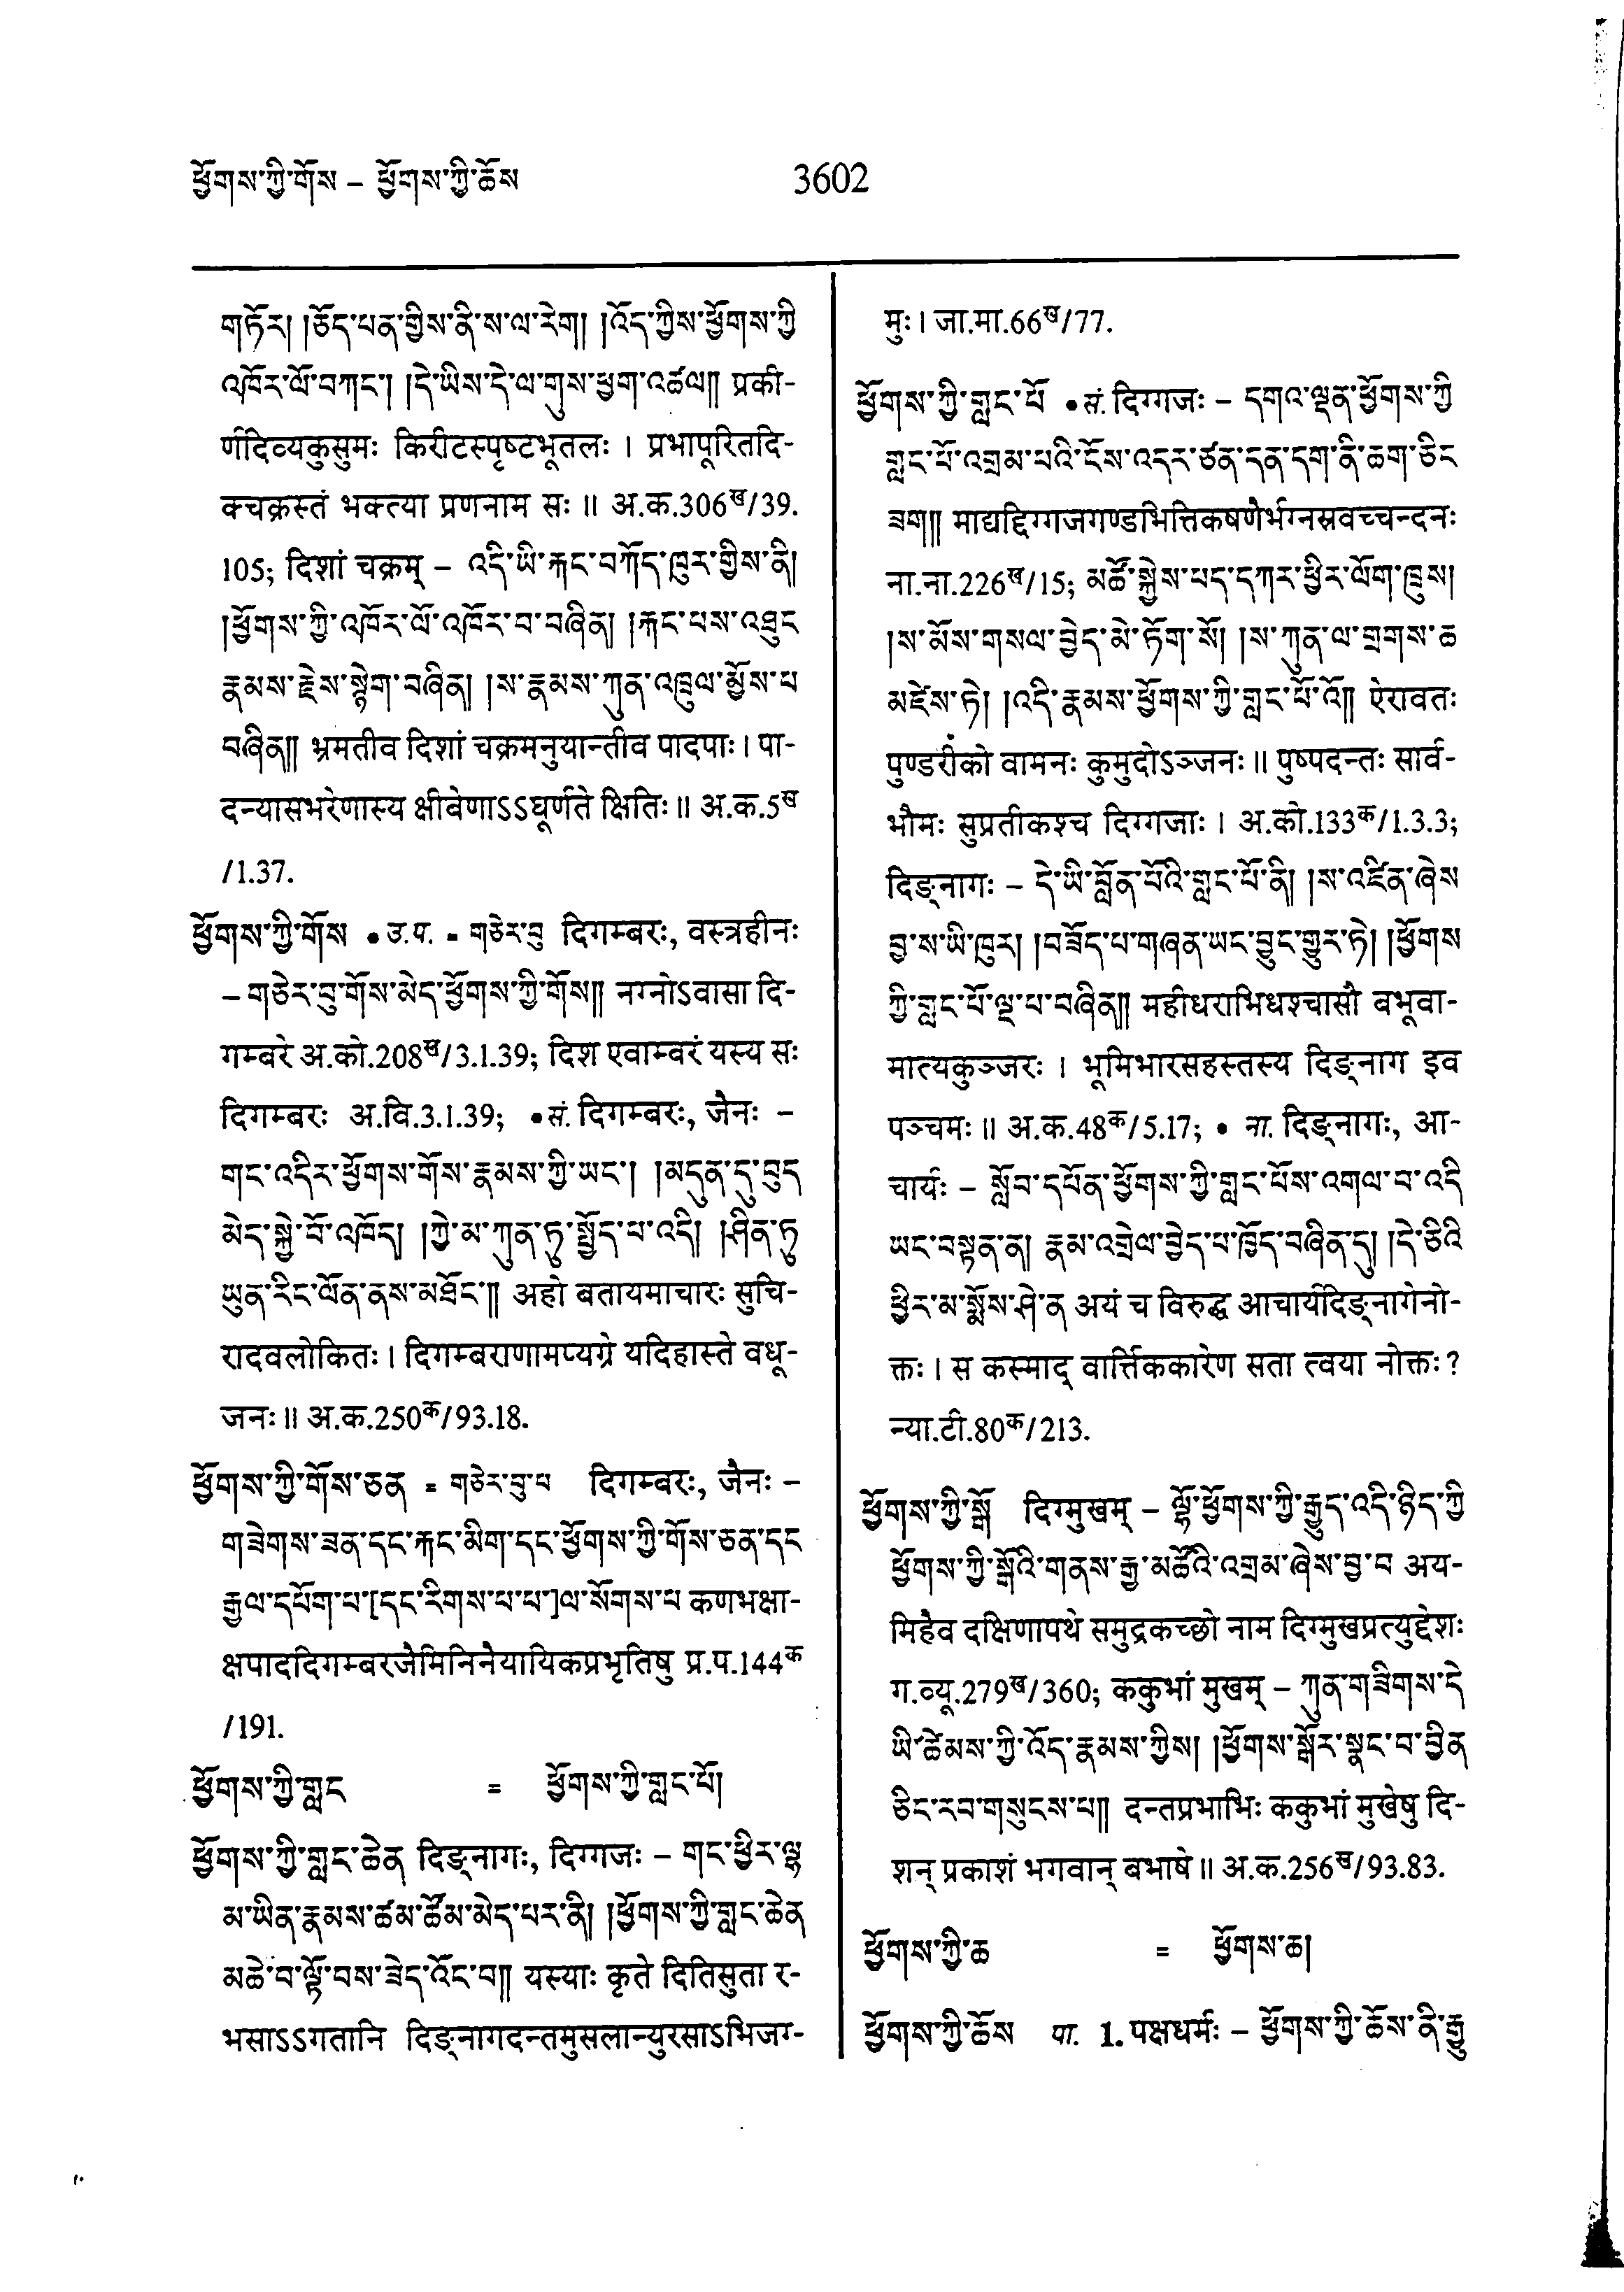 ཕྱོགས་ཀྱི་གོས – ཕྱོགས་ཀྱི་ཆོས
3602
གཏོར། །ཅོད་པན་གྱིས་ནི་ས་ལ་རེག། །འོད་ཀྱིས་ཕྱོགས་ཀྱི
འཁོར་ལོ་བཀང་། །དེ་ཡིས་དེ་ལ་གུས་ཕྱག་འཚལ།། प्रकी-
र्णदिव्यकुसुमः किरीटस्पृष्टभूतलः । प्रभापूरितदि-
क्चक्रस्तं भक्त्या प्रणनाम सः ॥ अ.क.306ख/39.
105; दिशां चक्रम् – འདི་ཡི་རྐང་བཀོད་ཁུར་གྱིས་ནི།
།ཕྱོགས་ཀྱི་འཁོར་ལོ་འཁོར་བ་བཞིན། །རྐང་པས་འཐུང
རྣམས་རྗེས་སྙེག་བཞིན། །ས་རྣམས་ཀུན་འཁྲུལ་མྱོས་པ
བཞིན།། भ्रमतीव दिशां चक्रमनुयान्तीव पादपाः । पा-
दन्यासभरेणास्य क्षीवेणाऽऽघूर्णते क्षितिः ॥ अ.क.5ख
/1.37.
ཕྱོགས་ཀྱི་གོས • उ.प. = གཅེར་བུ दिगम्बरः, वस्त्रहीनः
– གཅེར་བུ་གོས་མེད་ཕྱོགས་ཀྱི་གོས།། नग्नोऽवासा दि-
गम्बरे अ.को.208ख/3.1.39; दिश एवाम्बरं यस्य सः
दिगम्बरः अ.वि.3.1.39; •सं. दिगम्बरः, जैनः –
གང་འདིར་ཕྱོགས་གོས་རྣམས་ཀྱི་ཡང་། །མདུན་དུ་བུད
མེད་སྐྱེ་བོ་འཁོད། །ཀྱེ་མ་ཀུན་ཏུ་སྤྱོད་པ་འདི། །ཤིན་ཏུ
ཡུན་རིང་ལོན་ནས་མཐོང་།། अहो बतायमाचारः सुचि-
रादवलोकितः । दिगम्बराणामप्यग्रे यदिहास्ते वधू-
जनः ॥ अ.क.250क/93.18.
ཕྱོགས་ཀྱི་གོས་ཅན = གཅེར་བུ་པ दिगम्बरः, जैनः –
གཟེགས་ཟན་དང་རྐང་མིག་དང་ཕྱོགས་ཀྱི་གོས་ཅན་དང
རྒྱལ་དཔོག་པ་[དང་རིགས་པ་པ་]ལ་སོགས་པ कणभक्षा-
क्षपाददिगम्बरजैमिनिनैयायिकप्रभृतिषु प्र.प.144क
/191.
ཕྱོགས་ཀྱི་གླང = ཕྱོགས་ཀྱི་གླང་པོ།
ཕྱོགས་ཀྱི་གླང་ཆེན दिङ्नागः, दिग्गजः – གང་ཕྱིར་ལྷ
མ་ཡིན་རྣམས་ཚམ་ཚོམ་མེད་པར་ནི། །ཕྱོགས་ཀྱི་གླང་ཆེན
མཆེ་བ་ལྟོ་བས་ཟེད་འོང་བ།། यस्याः कृते दितिसुता र-
भसाऽऽगतानि दिङ्नागदन्तमुसलान्युरसाऽभिजग्-
मुः । जा.मा.66ख/77.
ཕྱོགས་ཀྱི་གླང་པོ •सं. दिग्गजः – དགའ་ལྡན་ཕྱོགས་ཀྱི
གླང་པོ་འགྲམ་པའི་ངོས་འདར་ཙན་དན་དག་ནི་ཆག་ཅིང
ཟག།། माद्यद्दिग्गजगण्डभित्तिकषणैर्भग्नस्रवच्चन्दनः
ना.ना.226ख/15; མཚོ་སྐྱེས་པད་དཀར་ཕྱིར་ལོག་ཁྲུས།
།ས་མོས་གསལ་བྱེད་མེ་ཏོག་སོ། །ས་ཀུན་ལ་གྲགས་ཆ
མཛེས་ཏེ། །འདི་རྣམས་ཕྱོགས་ཀྱི་གླང་པོ་འོ།། ऐरावतः
पुण्डरीको वामनः कुमुदोऽञ्जनः ॥ पुष्पदन्तः सार्व-
भौमः सुप्रतीकश्च दिग्गजाः । अ.को.133क/1.3.3;
दिङ्नागः – དེ་ཡི་བློན་པོའི་གླང་པོ་ནི། །ས་འཛིན་ཞེས
བྱ་ས་ཡི་ཁུར། །བཟོད་པ་གཞན་ཡང་བྱུང་གྱུར་ཏེ། །ཕྱོགས
ཀྱི་གླང་པོ་ལྔ་པ་བཞིན།། महीधराभिधश्चासौ बभूवा-
मात्यकुञ्जरः । भूमिभारसहस्तस्य दिङ्नाग इव
पञ्चमः ॥ अ.क.48क/5.17; • ना. दिङ्नागः, आ-
चार्यः – སློབ་དཔོན་ཕྱོགས་ཀྱི་གླང་པོས་འགལ་བ་འདི
ཡང་བསྟན་ན། རྣམ་འགྲེལ་བྱེད་པ་ཁྱོད་བཞིན་དུ། །དེ་ཅིའི
ཕྱིར་མ་སྨོས་ཤེ་ན अयं च विरुद्ध आचार्यदिङ्नागेनो-
क्तः । स कस्माद् वार्त्तिककारेण सता त्वया नोक्तः ?
न्या.टी.80क/213.
ཕྱོགས་ཀྱི་སྒོ दिग्मुखम् – ལྷོ་ཕྱོགས་ཀྱི་རྒྱུད་འདི་ཉིད་ཀྱི
ཕྱོགས་ཀྱི་སྒོའི་གནས་རྒྱ་མཚོའི་འགྲམ་ཞེས་བྱ་བ अय-
मिहैव दक्षिणापथे समुद्रकच्छो नाम दिग्मुखप्रत्युद्देशः
ग.व्यू.279ख/360; ककुभां मुखम् – ཀུན་གཟིགས་དེ
ཡི་ཚེམས་ཀྱི་འོད་རྣམས་ཀྱིས། །ཕྱོགས་སྒོར་སྣང་བ་བྱིན
ཅིང་རབ་གསུངས་པ།། दन्तप्रभाभिः ककुभां मुखेषु दि-
शन् प्रकाशं भगवान् बभाषे ॥ अ.क.256ख/93.83.
ཕྱོགས་ཀྱི་ཆ = ཕྱོགས་ཆ།
ཕྱོགས་ཀྱི་ཆོས पा. 1. पक्षधर्मः – ཕྱོགས་ཀྱི་ཆོས་ནི་རྒྱུ